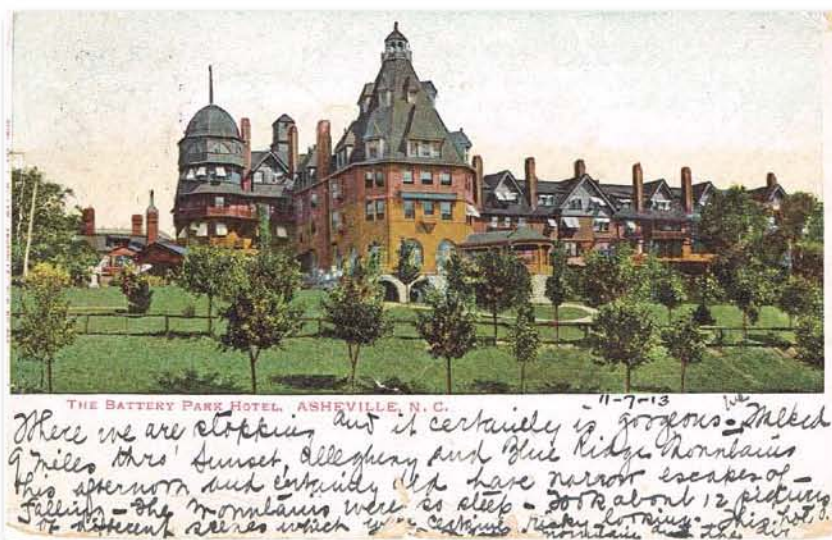 THE BATTERY PARK HOTEL, ASHEVILLE, N. C.
11-7-13
Where we are stopping and it certainely is gorgeous - we Walked
9 miles thro' Sunset, Allegheny and Blue Ridge Mountains
this afternoon and certainly did have narrow escapes of -
falling - The mountains were so steep - Took about 12 pictures
of different scenes which risky looking. This hotel
mountain and the air